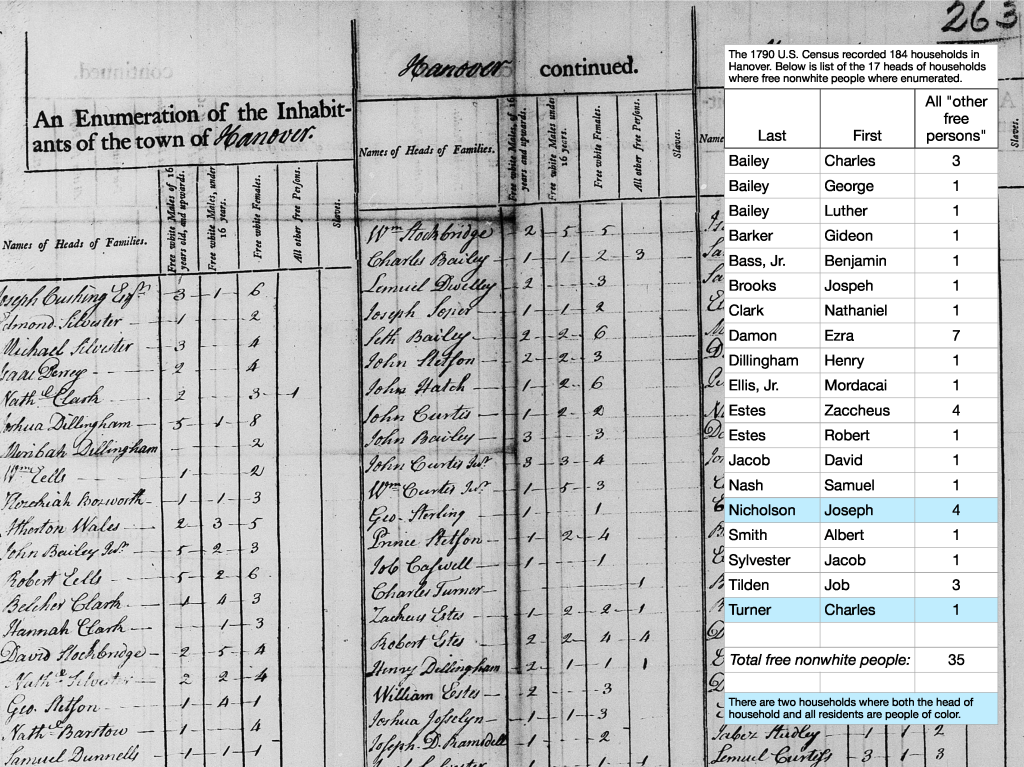 263
Hanover continued.
An Enumeration of the Inhabit-
ants of the town of Hanover.
Names of Heads of Families.
Free white Males of 16 years old, and upwards.
Free white Males, under 16 years.
Free white Females.
All other free Persons.
Slaves.
Joseph Cushing Esqr. 3 1 6
Edmond Silvester 1 2
Michael Silvester 3 4
Isaac Perrey 2 4
Nathl. Clark 2 3 1
Joshua Dillingham 5 1 8
Meribah Dillingham 2
Wm Eells 1 2
Hezechiah Bosworth 1 1 3
Atherton Wales 2 3 5
John Bailey Junr. 5 2 3
Robert Eells 5 2 6
Belcher Clark 1 4 3
Hannah Clark 1 3
David Stockbridge 2 5 4
Nathl. Silvester 2 2 4
Geo. Stetson 1 4 1
Nathl. Barstow 1 4
Samuel Dunnells 1 1 1
Names of Heads of Families.
Free white Males, of 16 years and upwards.
Free white Males under 16 years.
Free white Females.
All other free Persons.
Slaves.
Wm Stockbridge 2 5 5
Charles Bailey 1 1 2 3
Lemuel Dwelley 2 3
Joseph 1 1 2
Seth Bailey 2 2 6
John Stetson 2 2 3
John Hatch 1 2 6
John Curtis 1 2 2
John Bailey 3 3
John Curtis Junr. 3 3 4
Wm Curtis Junr. 1 5 3
Geo. Sterling 1 1
Prince Stetson 1 2 4
Job Caswell 1 1
Charles Turner 1
Zacheus Estes 1 2 2 1
Robert Estes 2 2 4 4
Henry Dillingham 2 1 1 1
William Estes 2 3
Joshua Josselyn 1 1 3
Joseph D. Ramsdell 1 2
Name
Slaves.
Jabez Studley 1 1 2
Lemuel Curtiss 3 1 3
The 1790 U.S. Census recorded 184 households in
Hanover. Below is list of the 17 heads of households
where free nonwhite people where enumerated.
Last First All "other free persons"
Bailey Charles 3
Bailey George 1
Bailey Luther 1
Barker Gideon 1
Bass, Jr. Benjamin 1
Brooks Jospeh 1
Clark Nathaniel 1
Damon Ezra 7
Dillingham Henry 1
Ellis, Jr. Mordacai 1
Estes Zaccheus 4
Estes Robert 1
Jacob David 1
Nash Samuel 1
Nicholson Joseph 4
Smith Albert 1
Sylvester Jacob 1
Tilden Job 3
Turner Charles 1
Total free nonwhite people: 35
There are two households where both the head of
household and all residents are people of color.